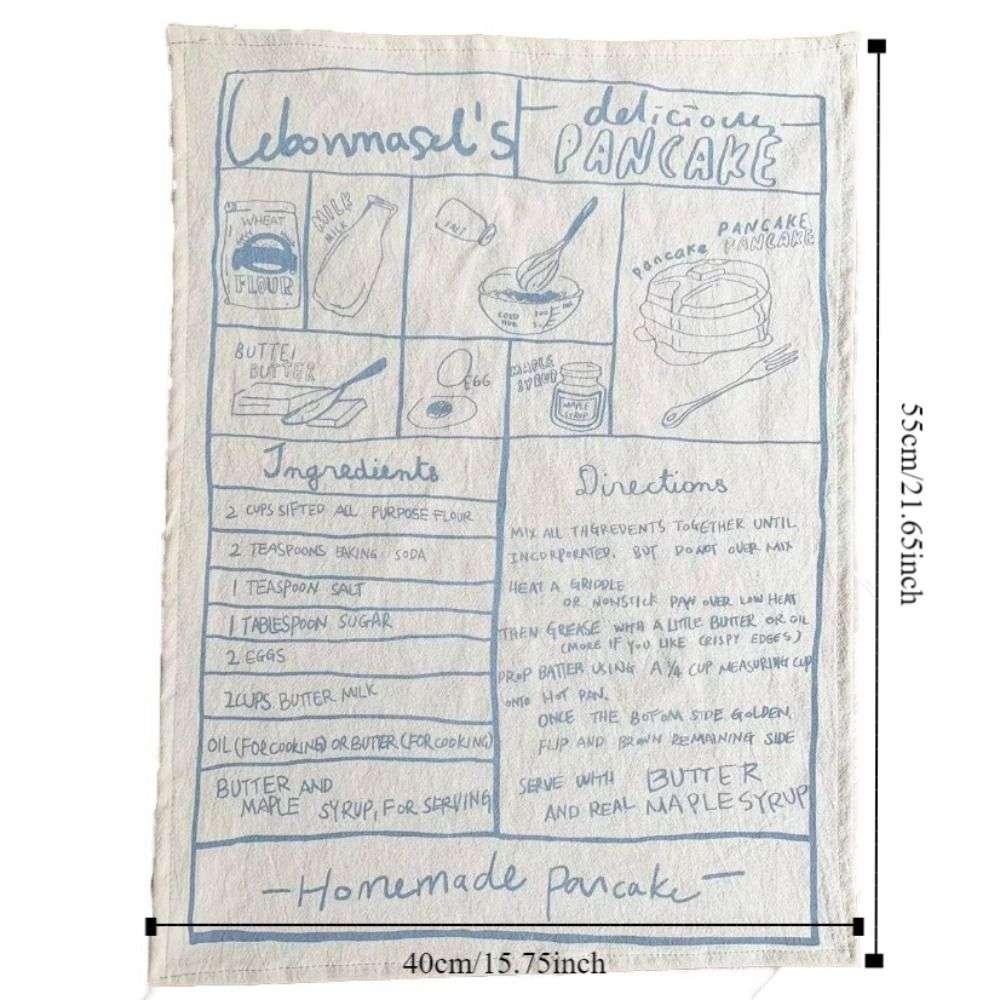 Lebonmasel's
delicious
PANCAKE
WHEAT
FLOUR
MILK
MILK
SALT
PANCAKE
PANCAKE
Pancake
BUTTEI
BUTTER
EGG
MAPLE
SYRUP
MAPLE
SYRUP
Ingredients
2 CUPS SIFTED ALL PURPOSE FLOUR
2 TEASPOONS BAKING SODA
1 TEASPOON SALT
1 TABLESPOON SUGAR
2 EGGS
2 CUPS BUTTER MILK
OIL (FOR COOKING) OR BUTTER (FOR COOKING)
BUTTER AND
MAPLE SYRUP, FOR SERVING
Directions
MIX ALL THGREDENTS TOGETHER UNTIL
INCORPORATED. BUT DO NOT OVER MIX
HEAT A GRIDDLE
OR NONSTICK PAN OVER LOW HEAT
THEN GREASE WITH A LITTLE BUTTER OR OIL
(MORE IF YOU LIKE CRISPY EDGES)
DROP BATTER USING A ¼ CUP MEASURING CUP
ONTO HOT PAN.
ONCE THE BOTOM SIDE GOLDEN,
FLIP AND BROWN REMAINING SIDE
SERVE WITH BUTTER
AND REAL MAPLE SYRUP
-Homemade pancake-
55cm/21.65inch
40cm/15.75inch